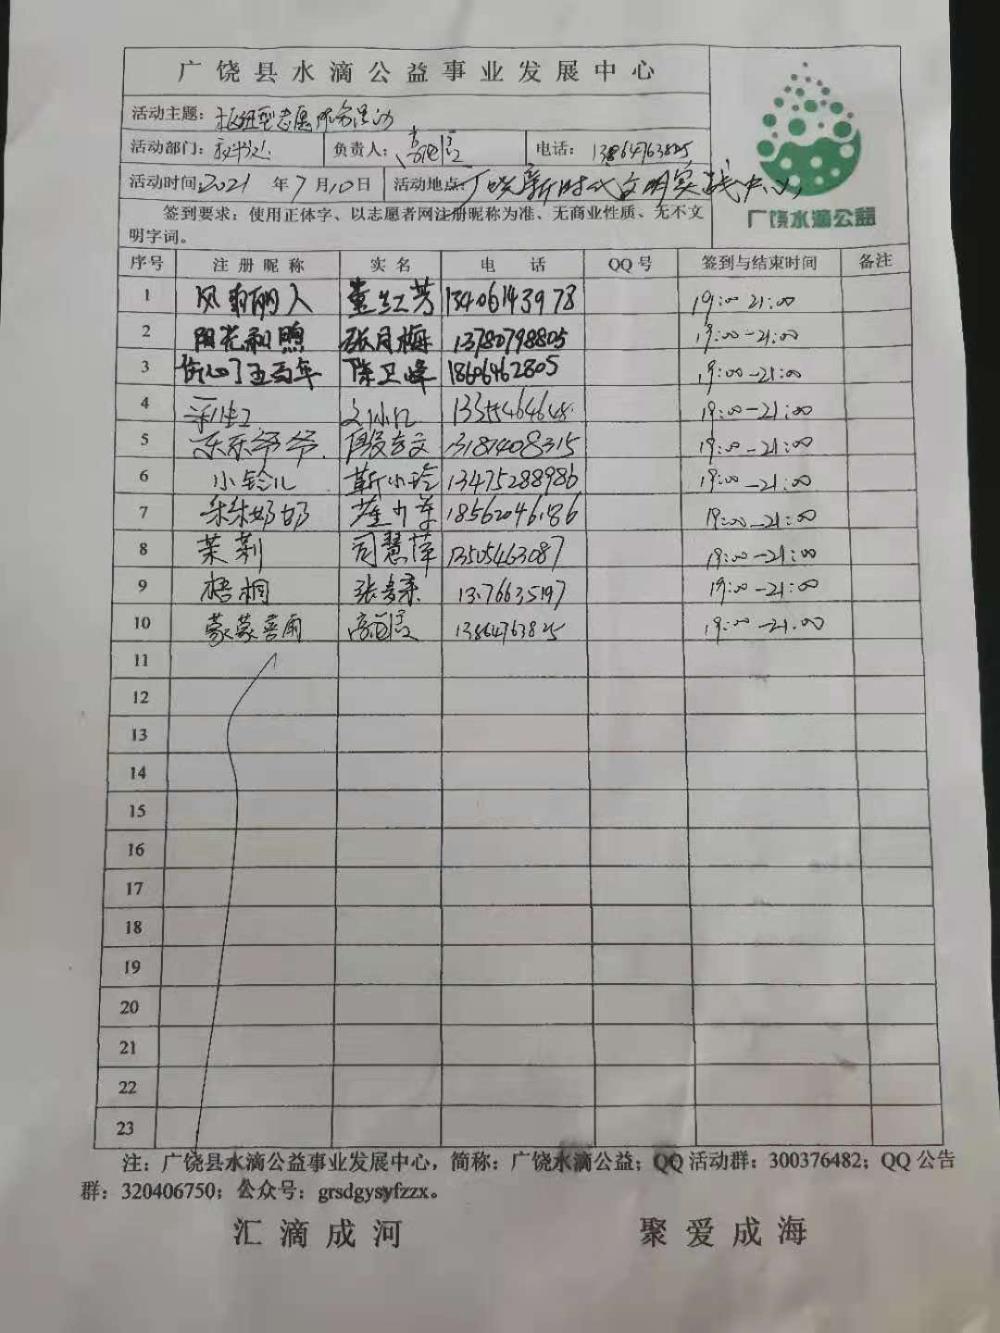 广饶县水滴公益事业发展中心
活动主题：枢纽型志愿服务活动
活动部门：秘书处 负责人： 电话：13864763825
活动时间：2021年7月10日 活动地点：广饶新时代文明实践中心
签到要求：使用正体字、以志愿者网注册昵称为准、无商业性质、无不文
明字词。
广饶水滴公益
序号 注册昵称 实名 电话 QQ号 签到与结束时间 备注
1 风雨丽人 董红芳 13406143978 19:00-21:00
2 阳光和煦 张月梅 13780798805 19:00-21:00
3 伤心了五百年 陈卫峰 18606462805 19:00-21:00
4 19:00-21:00
5 乐乐爷爷 13181408315 19:00-21:00
6 小铃儿 靳小玲 13475288986 19:00-21:00
7 朵朵奶奶 18562046186 19:00-21:00
8 茉莉 司慧萍 13505463087 19:00-21:00
9 梧桐 19:00-21:00
10 蒙蒙喜雨 13864763825 19:00-21:00
11
12
13
14
15
16
17
18
19
20
21
22
23
注：广饶县水滴公益事业发展中心，简称：广饶水滴公益；QQ活动群：300376482；QQ公告
群：320406750；公众号：grsdgysyfzzx。
汇滴成河 聚爱成海